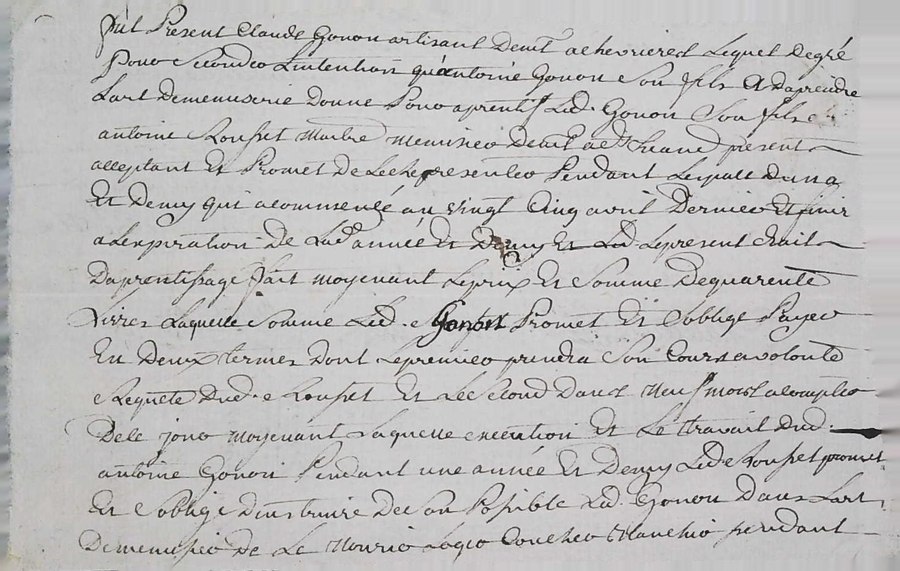 fut Present Claude Gonon artisant Demt a chevrieres Lequel De gré
Pour Seconder Lintention qua antoine Gonon Son fils Dapreindre
Lart De menuserie Donne Pour aprentif Led. Gonon Son fils a
antoine Rouset Maitre menusier Demt present
acceptant Et Promet De Lepresenter Pendant Lespace Dun a
Et Demy qui a commencé au vingt Cinq avril Dernier Et finir
a Lexpiration De Lad année Et Demy Et Led. Lepresent trait
Daprentissage fait moyenant Leprix Et Somme Dequarente
Livres Laquelle Somme Led. Gonon Promet Et Soblige Payer
En Deux termes Dont Lepremier prendra Son Cours a volonté
Requete Dud. Rouset Et Le Second Dans Neuf mois acomplir
De ce jour moyenant Laquelle execution Et Le travail Dud.
antoine Gonon Pendant une année Et Demy Led Rouset promet
Et Soblige Dinstruire De Son Posible Led. Gonon Dans Lart
De menusier De Le Nourir Loger Coucher Blanchir pendant